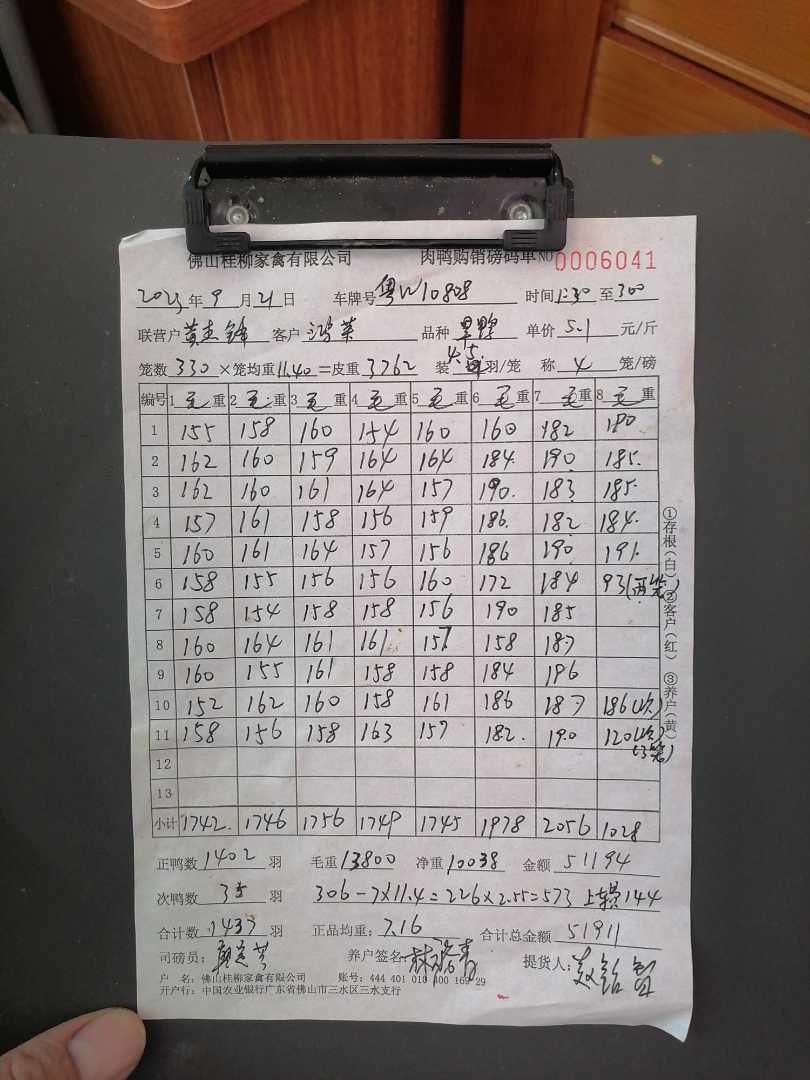 佛山桂柳家禽有限公司 肉鸭购销磅码单 NO 0006041
2023年9月21日 车牌号 粤W10808 时间 1:30 至 300
联营户 黄 客户 鸿 品种 单价 5.1 元/斤
笼数 330 ×笼均重 11.40 =皮重 3762 装 4.5 羽/笼 称 4 笼/磅
编号 1 毛重 2 毛重 3 毛重 4 毛重 5 毛重 6 毛重 7 毛重 8 毛重
1 155 158 160 154 160 160 182 180
2 162 160 159 164 164 184. 190. 185.
3 162 160 161 164 157 190. 183 185.
4 157 161 158 156 159 186. 182 184.
5 160 161 164 157 156 186 190. 191.
6 158 155 156 156 160 172 184 93(两笼)
7 158 154 158 158 156 190 185
8 160 164 161 161 157 158 187
9 160 155 161 158 158 184 196
10 152 162 160 158 161 186 187 186(次)
11 158 156 158 163 157 182. 190 120(次)
(3笼)
12
13
小计 1742. 1746 1756 1749 1745 1978 2056 1028
正鸭数 1402 羽 毛重 13800 净重 10038 金额 51194
次鸭数 35 羽 306-7×11.4=226×2.55=573 上 144
合计数 1437 羽 正品均重: 7.16 合计总金额 51911
司磅员: 养户签名 林 青 提货人:
户 名: 佛山桂柳家禽有限公司 账号: 444 401 010 400 169 29
开户行: 中国农业银行广东省佛山市三水区三水支行
①存根(白) ②客户(红) ③养户(黄)